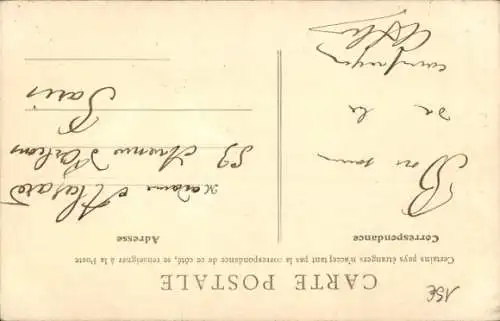 CARTE POSTALE
Certains pays étrangers n'acceptant pas la correspondance de ce côté, se renseigner à la Poste
Correspondance
Adresse
Bon
de la
campagne
Madame
59 Avenue d'Orléans
Paris
15E